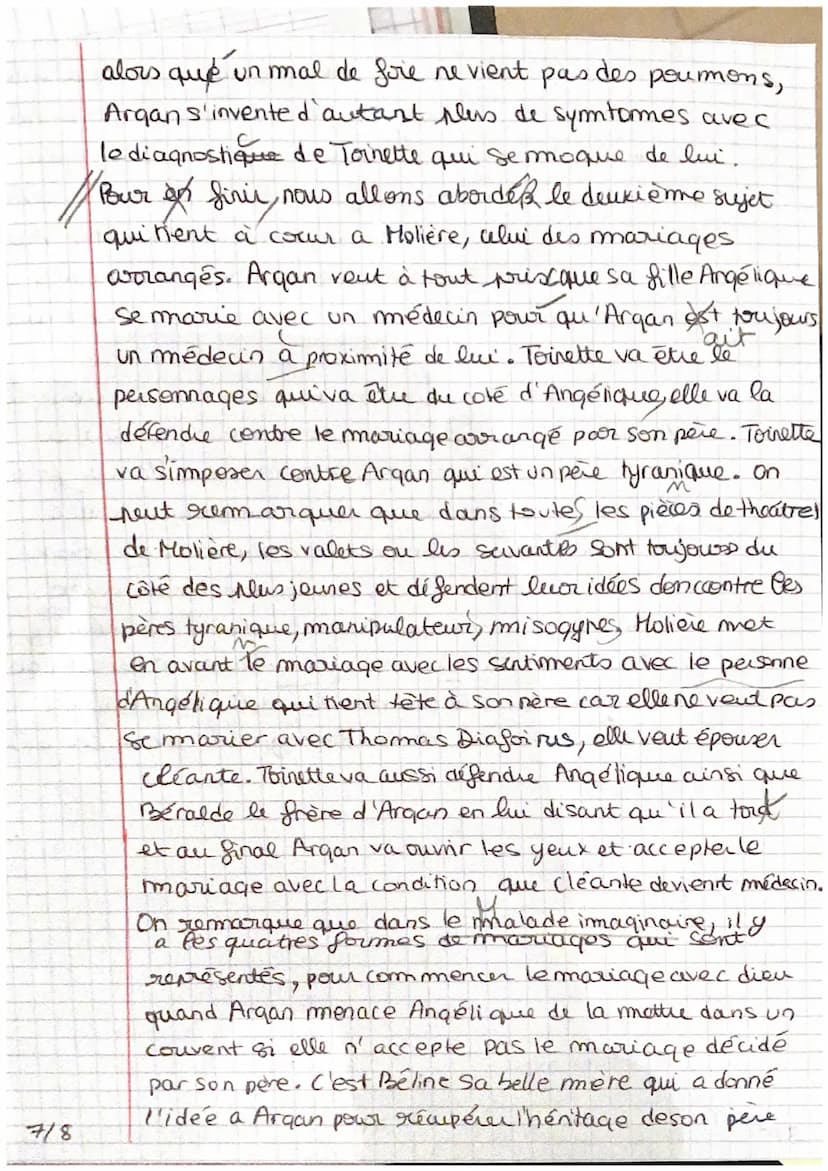 alors que un mal de foie ne vient pas des poumons,
Argan s'invente d'autant plus de symtomes avec
le diagnostic de Toinette qui se moque de lui.
// Pour finir, nous allons abordé le deuxième sujet
qui tient à cœur a Molière, celui des mariages
arrangés. Argan veut à tout prix que sa fille Angélique
se marie avec un médecin pour qu'Argan ait toujours
un médecin à proximité de lui. Toinette va être le
personnages qui va être du coté d'Angélique, elle va la
défendre contre le mariage arrangé par son père. Toinette
va s'imposer contre Argan qui est un père tyrannique. on
peut remarquer que dans toutes les pièces de théatres
de Molière, les valets ou les suivantes sont toujours du
côté des plus jeunes et défendent leur idées d'encontre les
pères tyrannique, manipulateurs, misogynes, Molière met
en avant le mariage avec les sentiments avec le personne
d'Angélique qui tient tête à son père car elle ne veut pas
se marier avec Thomas Diafoirus, elle veut épouser
Cléante. Toinette va aussi défendre Angélique ainsi que
Béralde le frère d'Argan en lui disant qu'il a tort
et au final Argan va ouvrir les yeux et accepter le
mariage avec la condition que Cléante devient médecin.
On remarque que dans le Malade imaginaire, il y
a les quatres formes de mariages qui sont
représentés, pour commencer le mariage avec dieu
quand Argan menace Angélique de la mettre dans un
couvent si elle n'accepte pas le mariage décidé
par son père. C'est Béline sa belle mère qui a donné
l'idée a Argan pour récupérer l'héritage de son père
7/8